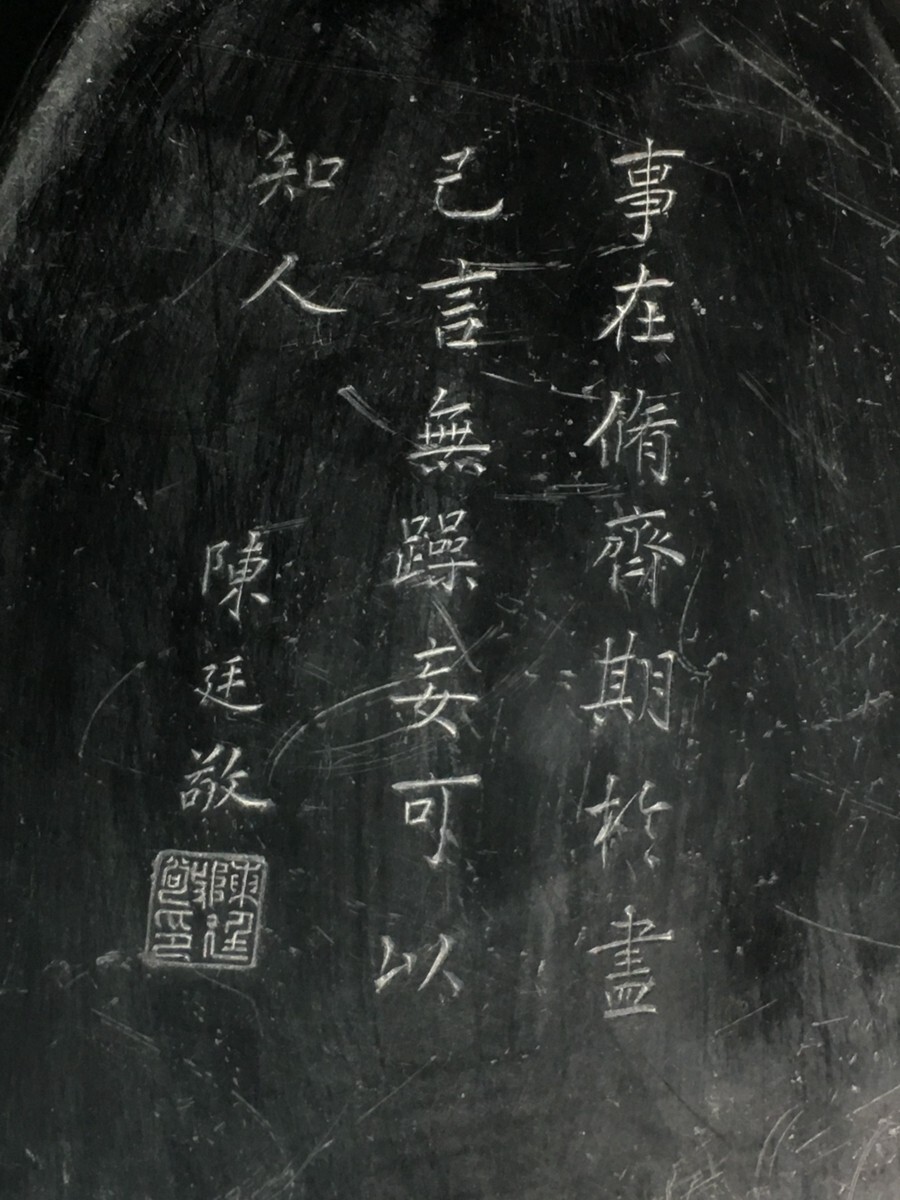 事在脩齊期於盡
己言無躁妄可以
知人
陳廷敬
陳廷敬印